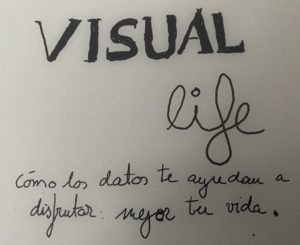 VISUAL
life
cómo los datos te ayudan a
disfrutar: mejor tu vida.